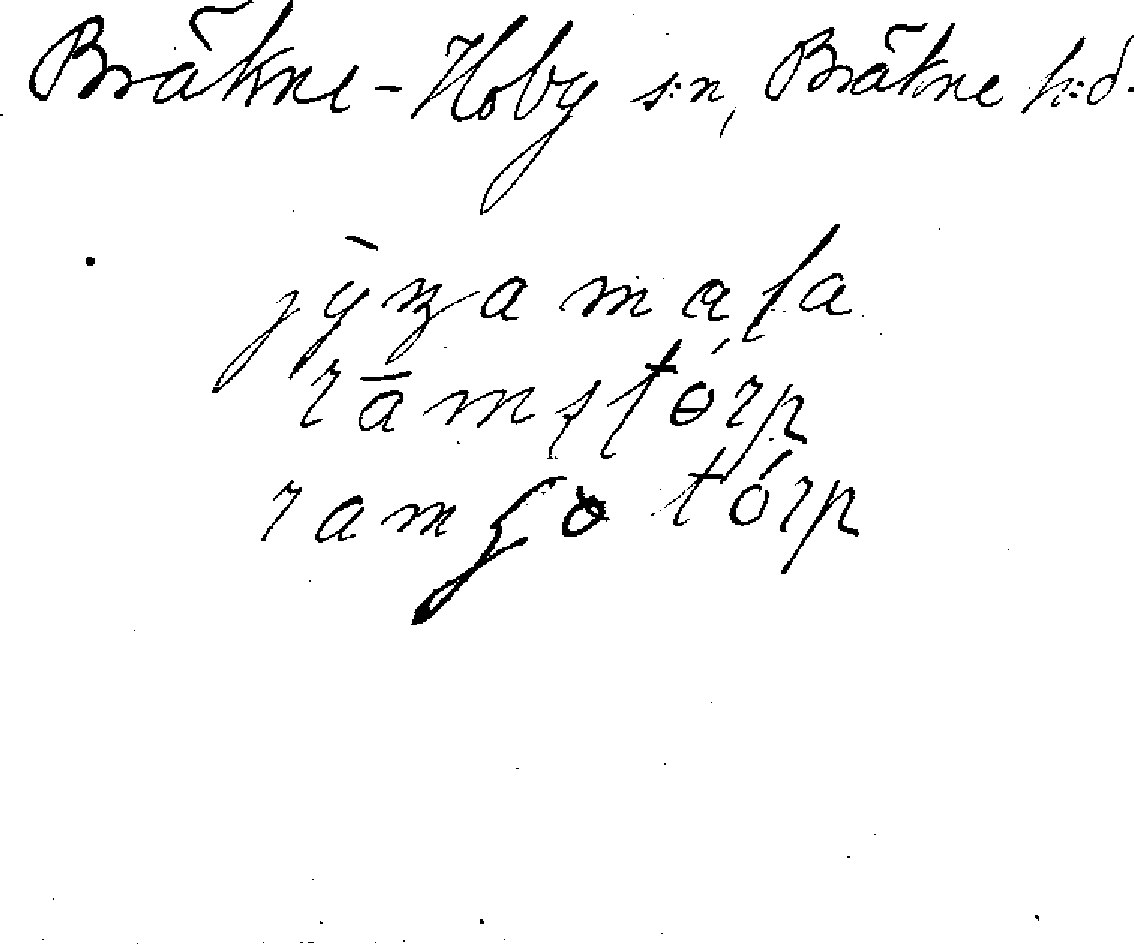 Bräkne-Hoby s:n, Bräkne h:d.
jỳzamąla
rāmstórp
ramsotórp